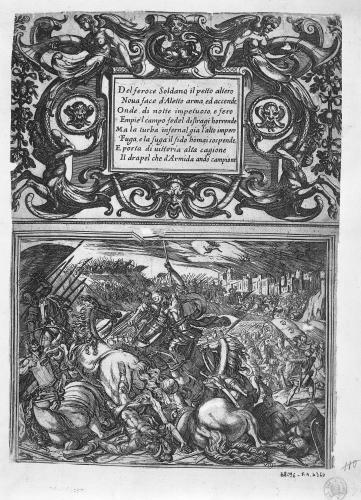 Del feroce Soldano il petto altero
Noua face d'Aletto arma, ed accende,
Onde di notte impetuoso, e fero
Empie'l campo fedel di stragi horrende
Ma la turba infernal già l'alto impero
Fuga, e la fuga il fido homai sospende,
E porta di uittoria alta cagione
Il drapel che d'Armida andò campione